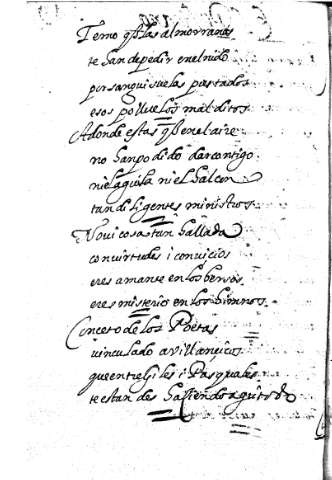 Temo q̃ las almorranas
te han de pedir en el nido
por sanguisuelas prestados
esos polluelos malditos
Adonde estas q̃ en el aire
no han podido dar contigo
ni el aguila ni el halcon
tan diligentes ministros
No vi cosa tan hallada
con virtudes i con vicios
eres amante en los bersos
eres misterio en los himnos
Conceto de los Poetas
vinculado a villancicos
que entre Giles i Pasquales
te estan deshaziendo a gritos